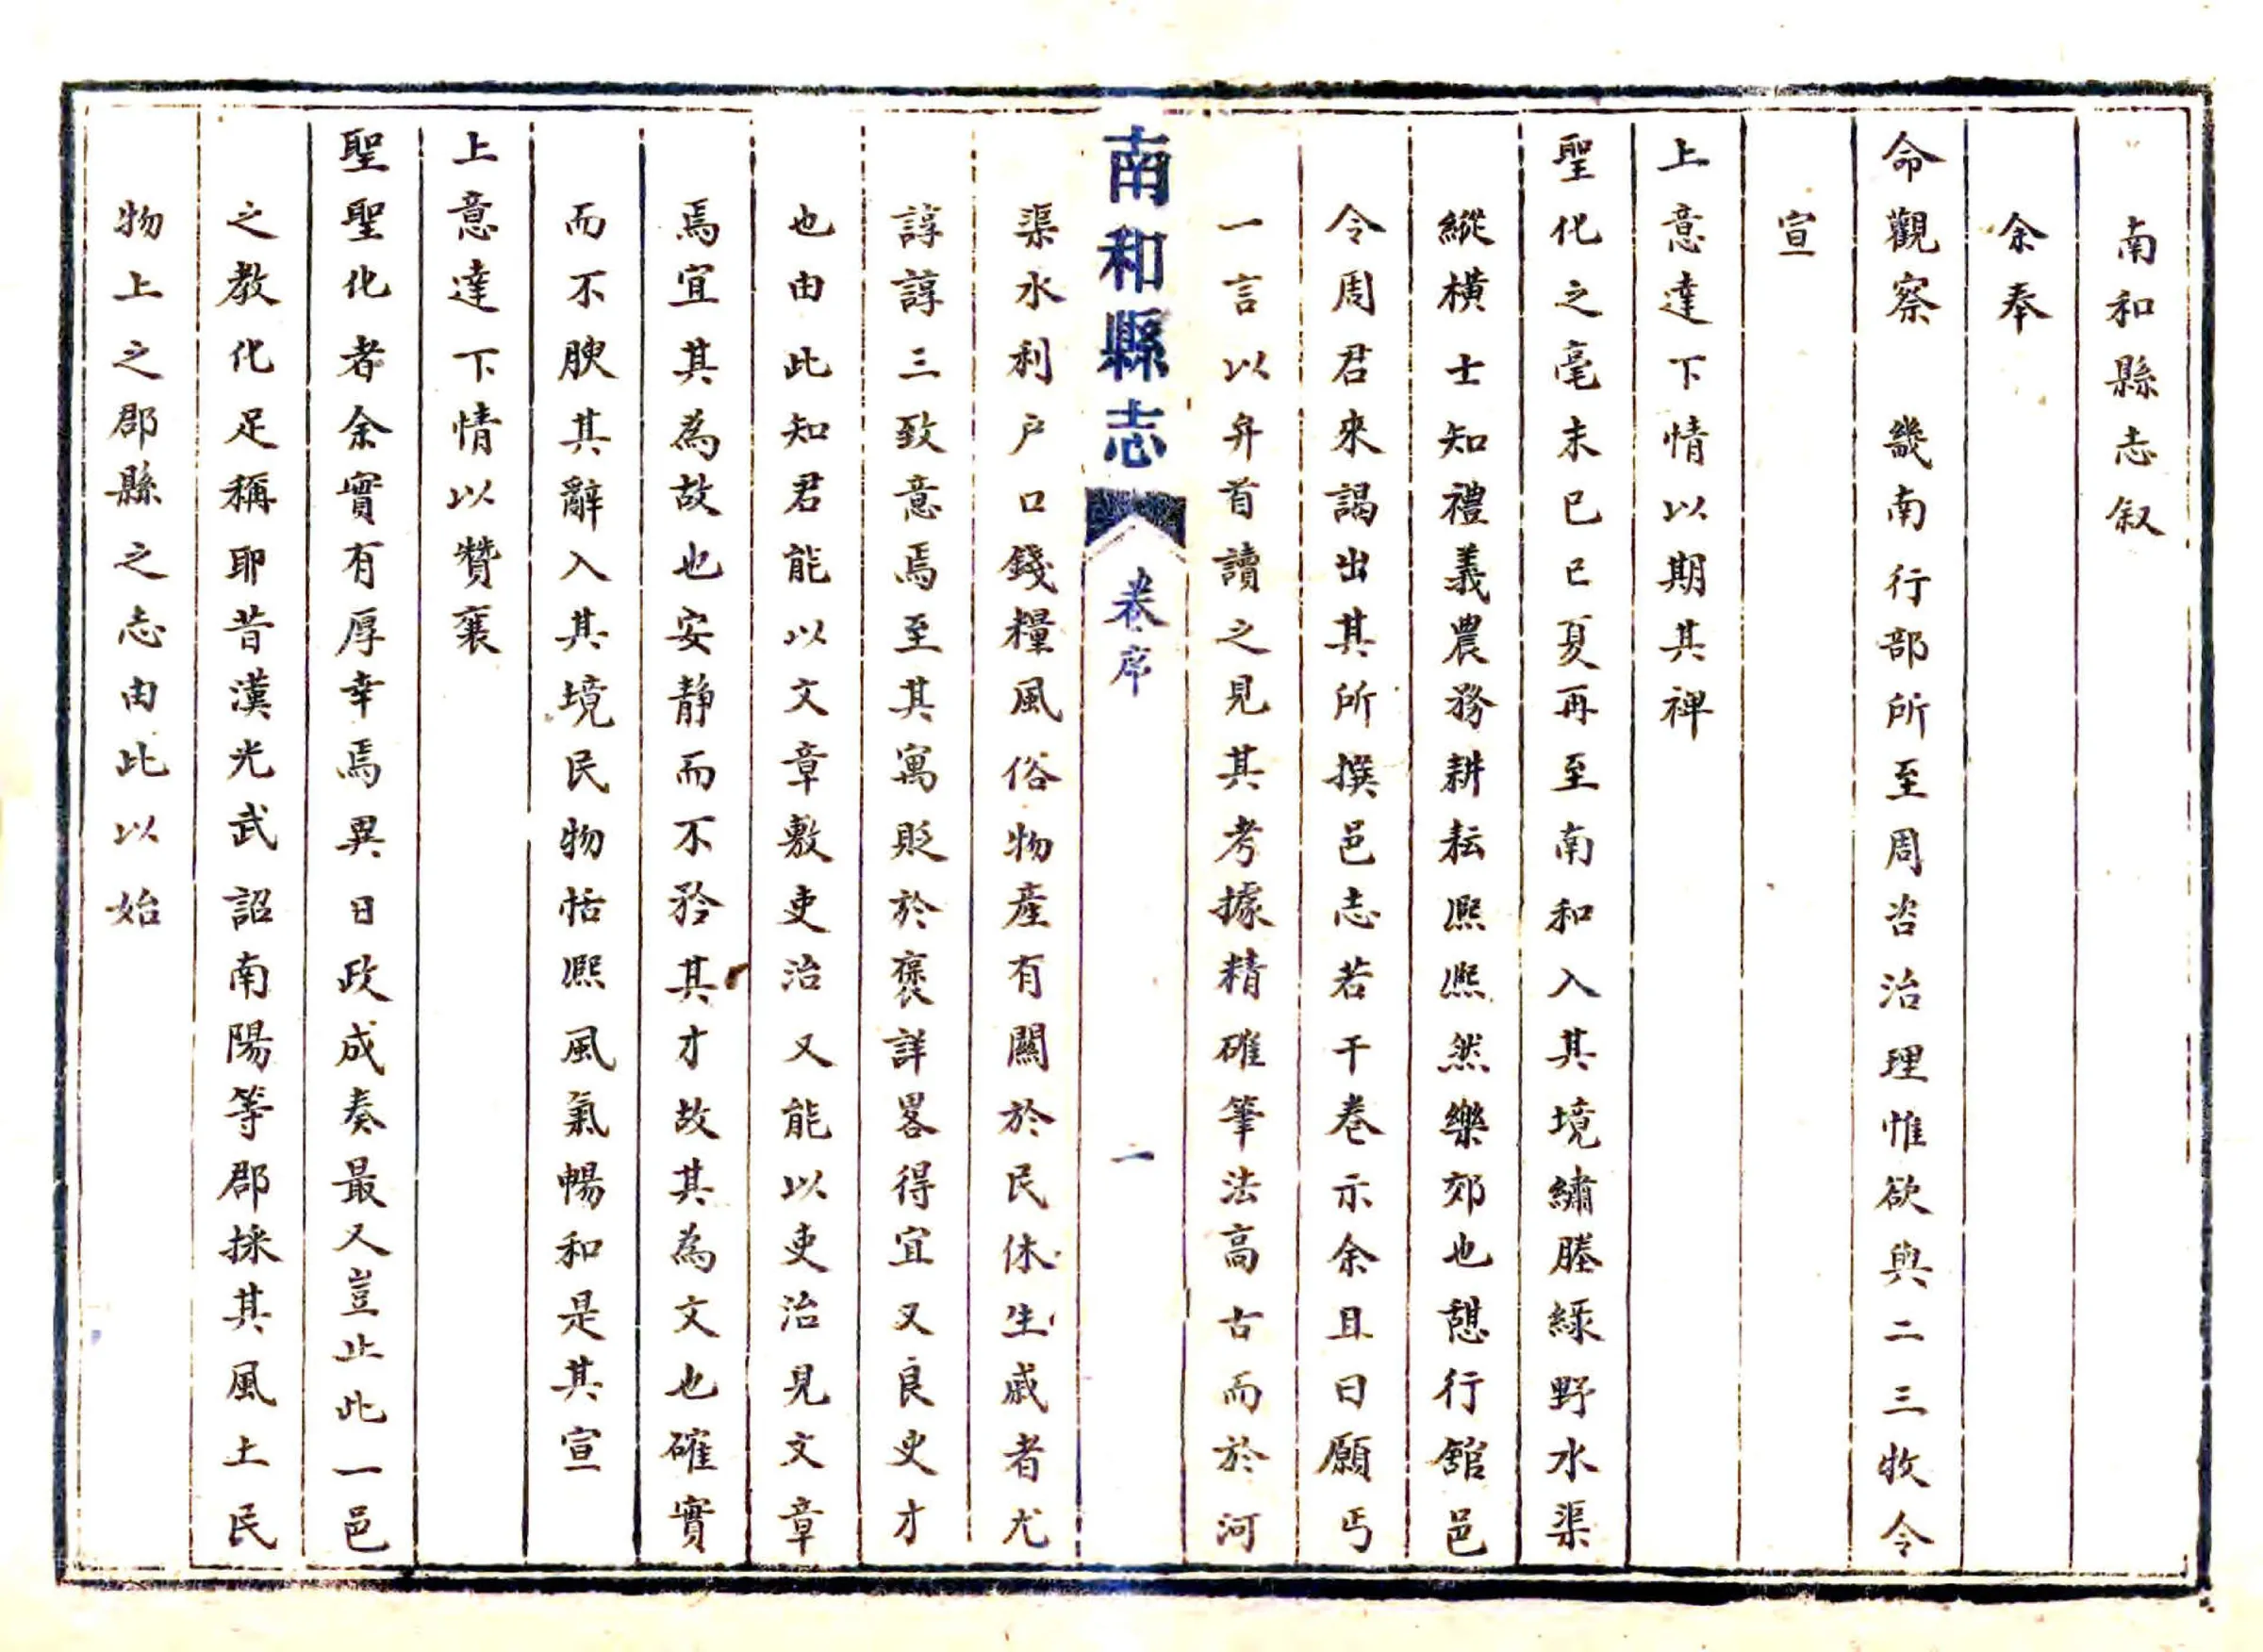 南和縣志叙
余奉
命觀察　畿南行部所至周咨治理惟欲與二三牧令
宣
上意達下情以期其裨
聖化之毫末已巳夏再至南和入其境繡塍綠野水渠
縱橫士知禮義農務耕耘熙熙然樂郊也憩行館邑
令周君來謁出其所撰邑志若干卷示余且曰願丐
一言以弁首讀之見其考據精確筆法高古而於河
南和縣志
卷序
一
渠水利户口錢糧風俗物產有關於民休生戚者尤
諄諄三致意焉至其寓貶於褒詳畧得宜又良史才
也由此知君能以文章敷吏治又能以吏治見文章
焉宜其為故也安靜而不矜其才故其為文也確實
而不腴其辭入其境民物恬熙風氣暢和是其宣
上意達下情以贊襄
聖聖化者余實有厚幸焉異日政成奏最又豈止此一邑
之教化足稱耶昔漢光武詔南陽等郡採其風土民
物上之郡縣之志由此以始